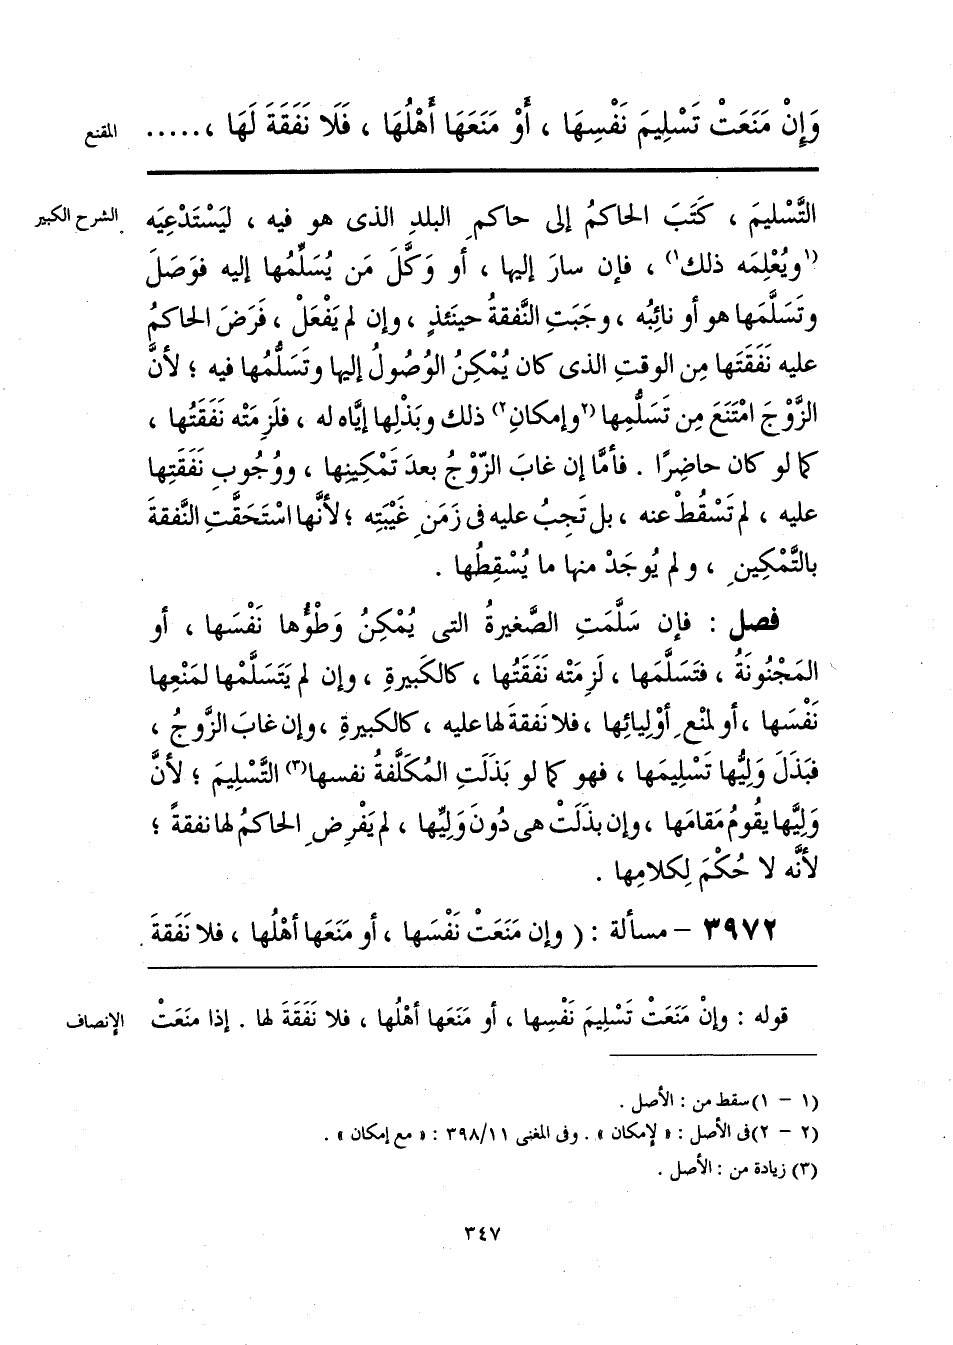 المقنع
وَإِنْ مَنَعَتْ تَسْلِيمَ نَفْسِهَا ، أَوْ مَنَعَهَا أَهْلُهَا ، فَلَا نَفَقَةَ لَهَا ، .....
الشرح الكبير
التَّسْليمَ ، كَتَبَ الحاكمُ إلى حاكمِ البلدِ الذى هو فيه ، ليَسْتَدْعِيَه
(١ويُعْلِمَه ذلك١) ، فإن سارَ إليها ، أو وَكَّلَ مَن يُسَلِّمُها إليه فوَصَلَ
وتَسَلَّمَها هو أو نائِبُه ، وجَبَتِ النَّفقةُ حينَئذٍ ، وإن لم يَفْعَلْ ، فَرَضَ الحاكمُ
عليه نَفَقَتَها مِن الوقتِ الذى كان يُمْكِنُ الوُصُولُ إليها وتَسَلُّمُها فيه ؛ لأنَّ
الزَّوْجَ امْتَنَعَ مِن تَسَلُّمِها (٢وإمكانِ٢) ذلك وبَذْلِها إيَّاه له ، فلَزِمَتْه نَفَقَتُها ،
كما لو كان حاضِرًا . فأمَّا إن غابَ الزّوْجُ بعدَ تَمْكِينِها ، ووُجُوبِ نَفَقَتِها
عليه ، لم تَسْقُطْ عنه ، بل تَجِبُ عليه فى زَمَنِ غَيْبَتِه ؛ لأنَّها اسْتَحَقَّتِ النَّفقةَ
بالتَّمْكِينِ ، ولم يُوجَدْ منها ما يُسْقِطُها .
فصل : فإن سَلَّمَتِ الصَّغيرةُ التى يُمْكِنُ وَطْؤُها نَفْسَها ، أو
المَجْنُونَةُ ، فتَسَلَّمَها ، لَزِمَتْه نَفَقَتُها ، كالكَبيرةِ ، وإن لم يَتَسَلَّمْها لمَنْعِها
نَفْسَها ، أو لمَنْعِ أوْلِيائِها ، فلا نَفقةَ لها عليه ، كالكبيرةِ ، وإن غابَ الزَّوجُ ،
فبَذَلَ وَلِيُّها تَسْلِيمَها ، فهو كما لو بَذَلَتِ المُكَلَّفةُ نفسها(٣) التَّسْليمَ ؛ لأنَّ
وَلِيَّها يقُومُ مَقامَها ، وإن بذَلَتْ هى دُونَ وَلِيِّها ، لم يَفْرِضِ الحاكمُ لها نفقةً ؛
لأنَّه لا حُكْمَ لِكلامِها .
٣٩٧٢ – مسألة : ( وإن مَنَعَتْ نَفْسَها ، أو مَنَعَها أهْلُها ، فلا نَفَقةَ
الإنصاف
قوله : وإنْ مَنَعَتْ تَسْلِيمَ نَفْسِها ، أو مَنَعَها أهْلُها ، فلا نَفَقَةَ لها . إذا منَعَتْ
(١ – ١) سقط من : الأصل .
(٢ – ٢) فى الأصل : « لإمكان » . وفى المغنى ٣٩٨/١١ : « مع إمكان » .
(٣) زيادة من : الأصل .
٣٤٧